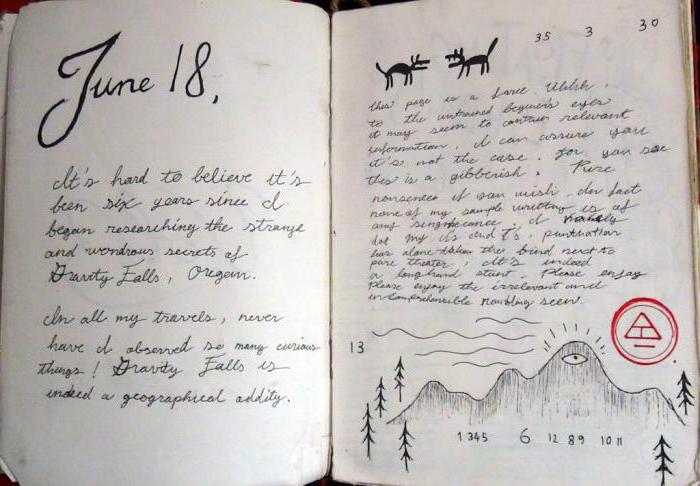 June 18,
It's hard to believe it's
been six years since I
began researching the strange
and wondrous secrets of
Gravity Falls, Oregon.
In all my travels, never
have I observed so many curious
things! Gravity Falls is
indeed a geographical oddity.
35 3 30
this page is a farce. Which,
to the untrained beginner's eyes
it may seem to contain relevant
information, I can assure you
it's not the case. for you see
this is a gibberish. Pure
nonsense if you wish. In fact
none of my sample writing is of
any significance. I rarely
dot my i's and t's. punctuation
has alone taken the bind next to
pure theater, It's indeed
a longhand stunt. Please enjoy
Please enjoy the irrelevant and
incomprehensible rambling seen.
13
1 345 6 12 8 9 10 11